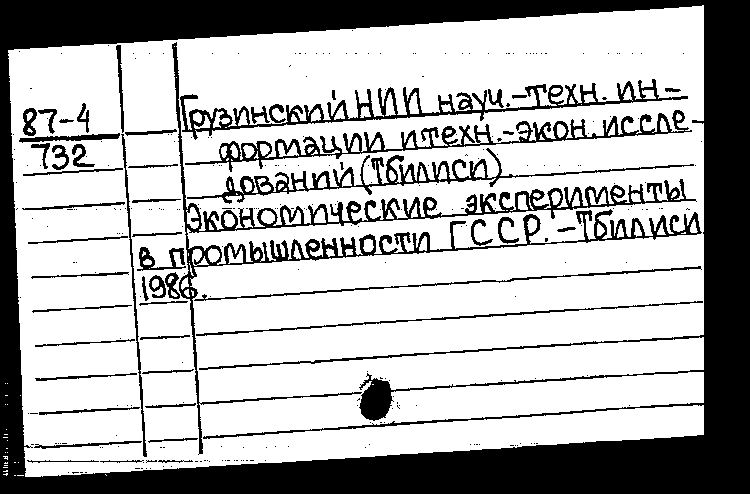 87-4
732
Грузинский НИИ науч.-техн. ин-
формации и техн.-экон. иссле-
дований (Тбилиси).
Экономические эксперименты
в промышленности ГССР. - Тбилиси
1986.